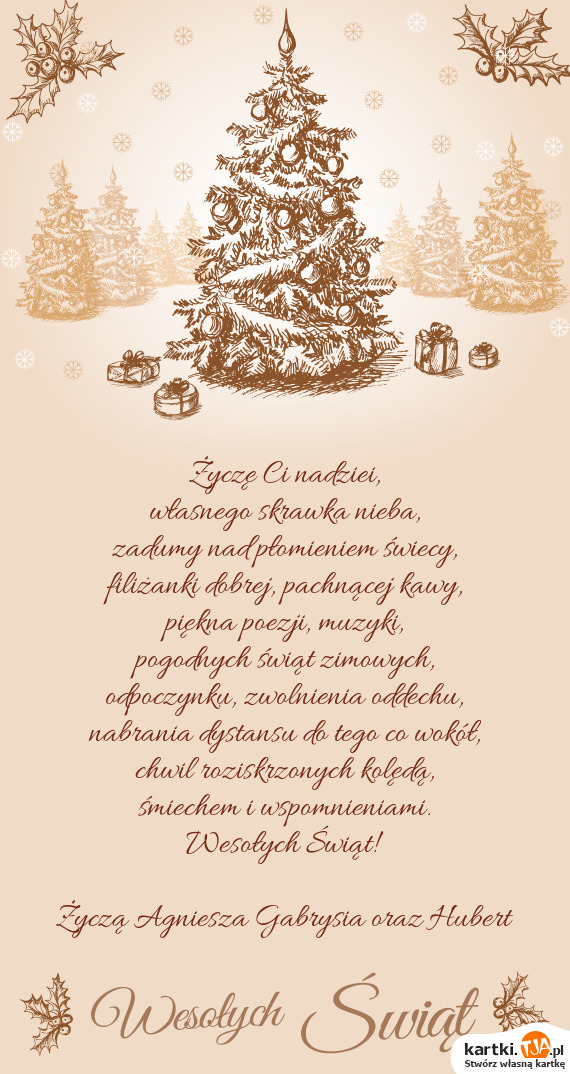 Życzę Ci nadziei,
własnego skrawka nieba,
zadumy nad płomieniem świecy,
filiżanki dobrej, pachnącej kawy,
piękna poezji, muzyki,
pogodnych świąt zimowych,
odpoczynku, zwolnienia oddechu,
nabrania dystansu do tego co wokół,
chwil roziskrzonych kolędą,
śmiechem i wspomnieniami.
Wesołych Świąt!
Życzą Agniesza Gabrysia oraz Hubert
Wesołych Świąt
kartki.TJA.pl
Stwórz własną kartkę